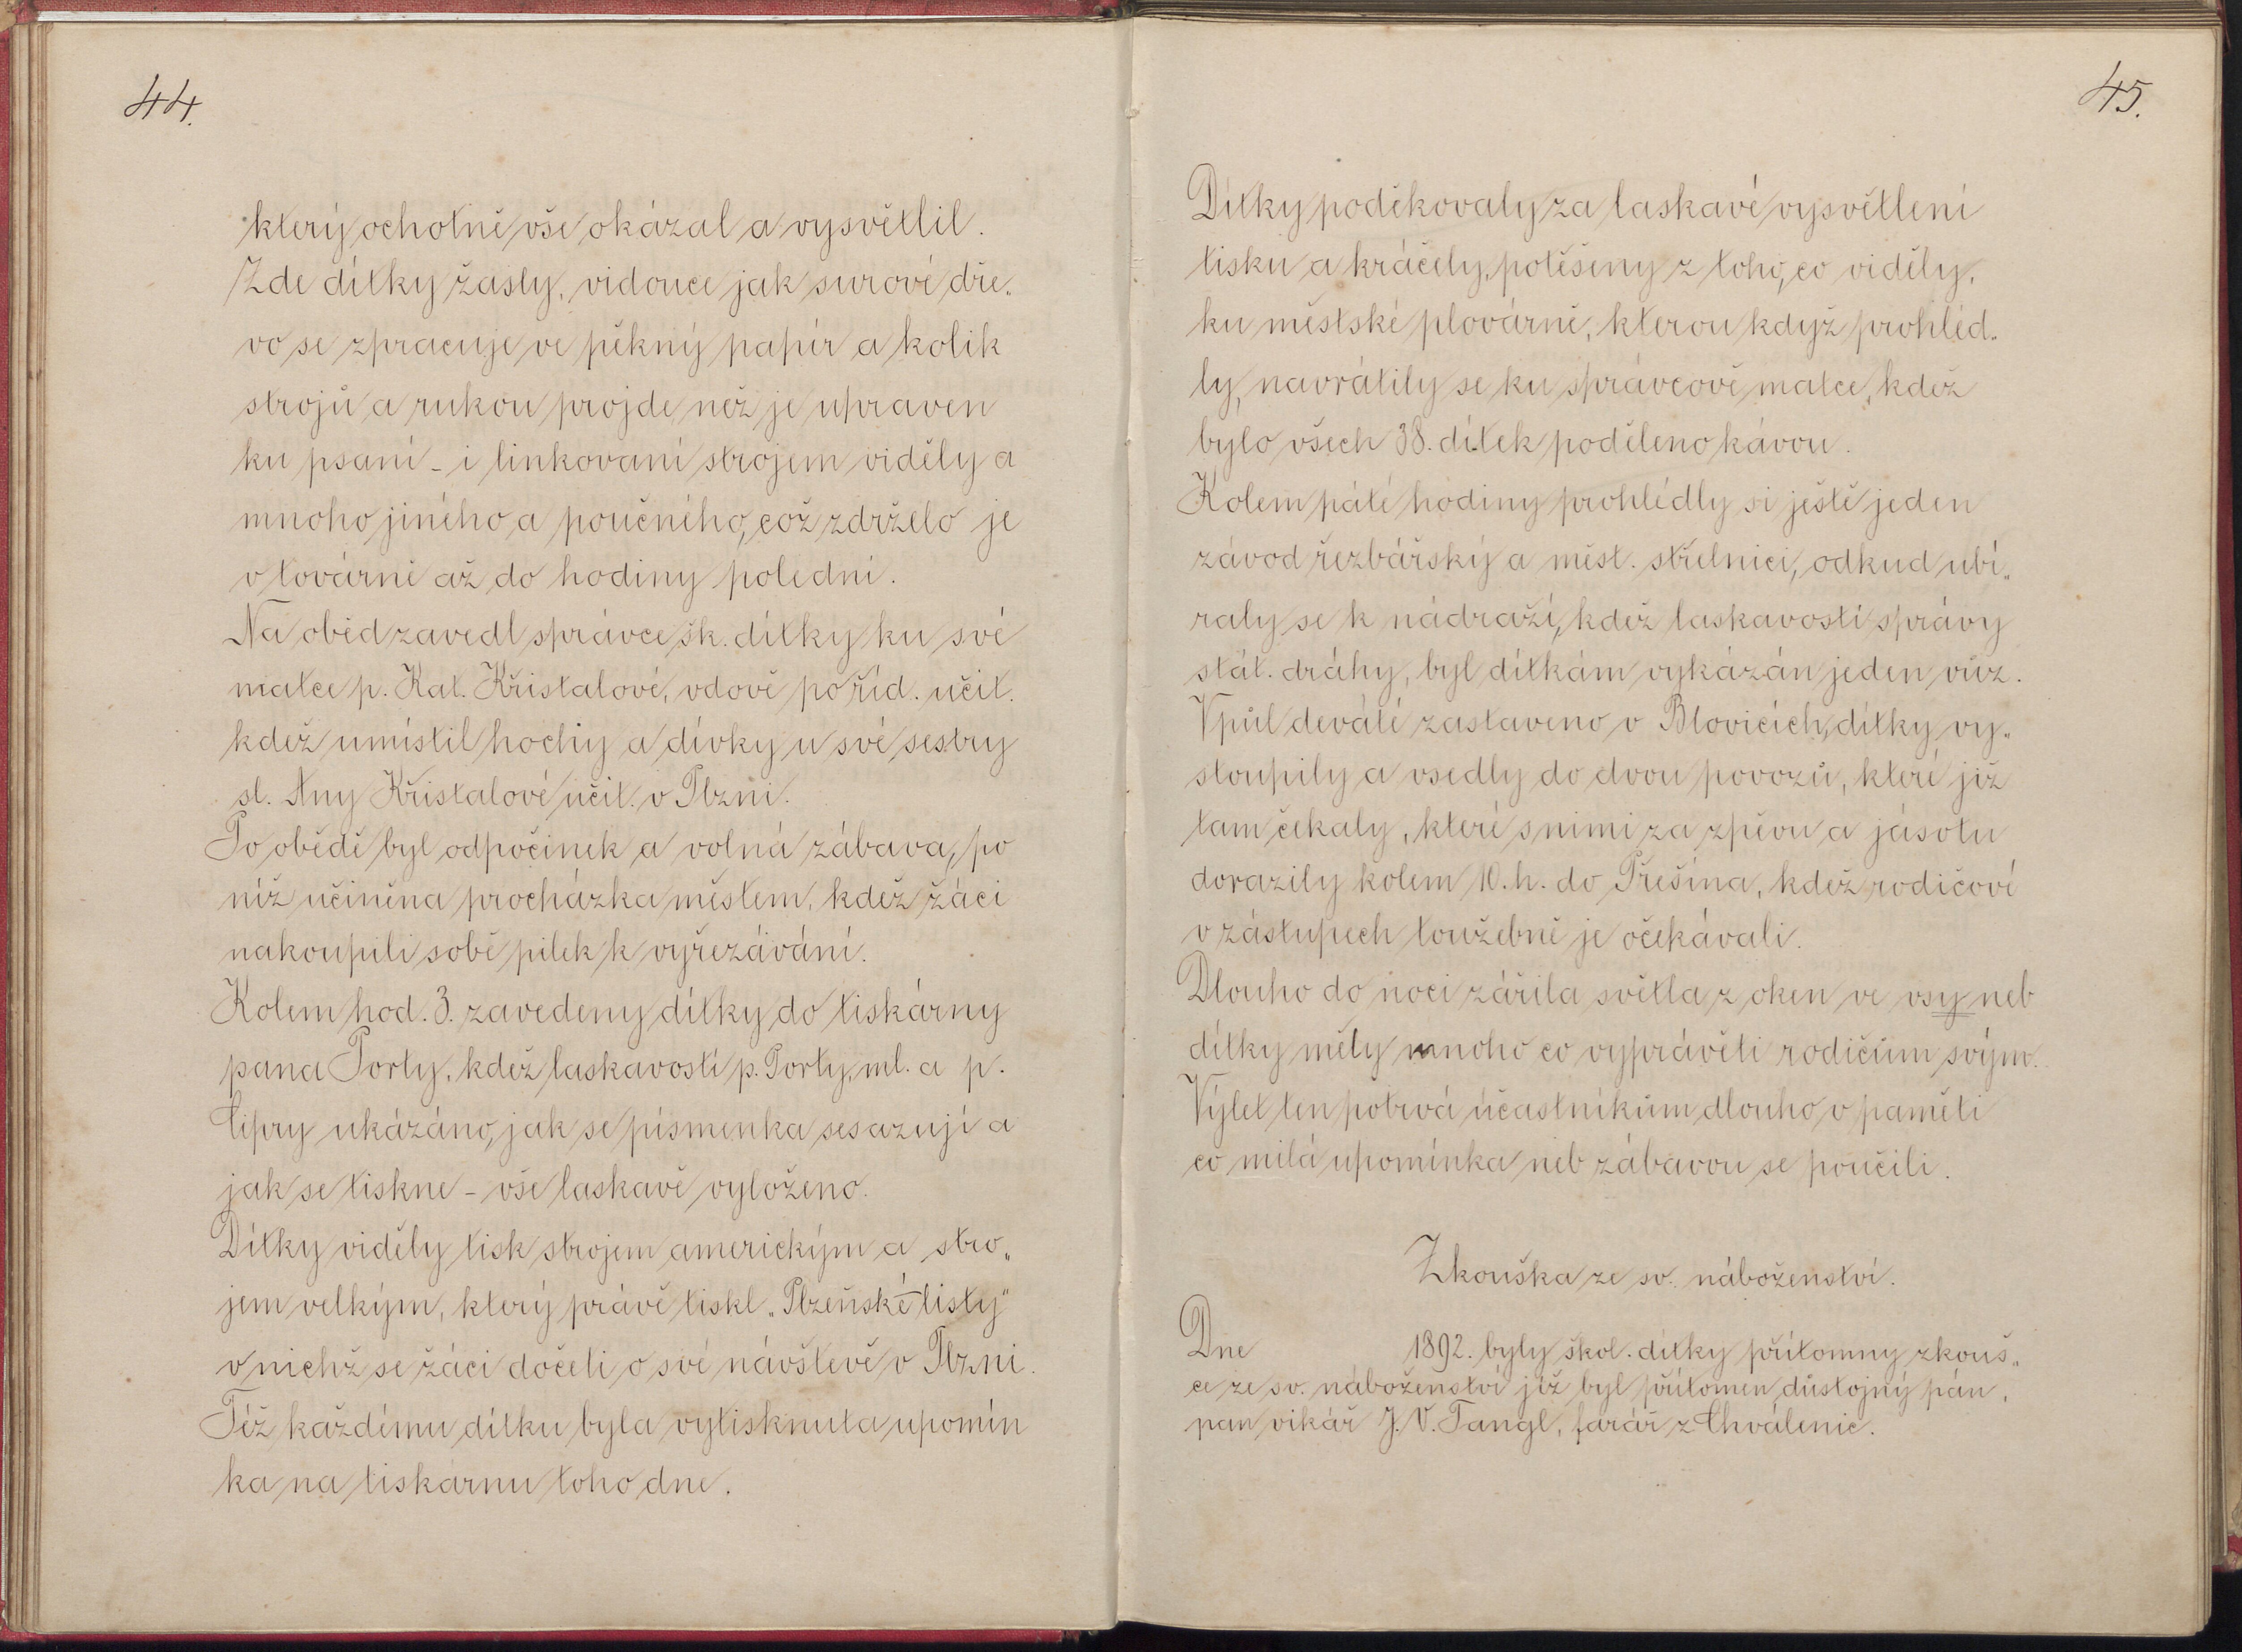 44.
který ochotně vše okázal a vysvětlil.
Zde dítky žasly, vidouce jak surové dře„
vo se zpracuje ve pěkný papír a kolik
strojů a rukou projde než je upraven
ku psaní - i linkovaní strojem viděly a
mnoho jiného a poučného, což zdrželo je
v továrně až do hodiny polední.
Na oběd zavedl správce šk. dítky ku své
matce p. Kat. Křistalové, vdově po říd. učit.
kdež umístil hochy a dívky u své sestry
sl. Any Křistalové učit. v Plzni.
Po obědě byl odpočinek a volná zábava, po
níž učiněna procházka městem, kdež žáci
nakoupili sobě pilek k vyřezávání.
Kolem hod. 3. zavedeny dítky do tiskárny
pana Porty, kdež laskavostí p. Porty, ml. a p.
Cipry ukázáno, jak se písmenka sesazují a
jak se tiskne - vše laskavě vyloženo.
Dítky viděly tisk strojem americkým a stro„
jem velkým, který právě tiskl „Plzeňské listy"
v nichž se žáci dočetli o své návštevě v Plzni.
Též každému dítku byla vytisknuta upomín
ka na tiskárnu toho dne.
45.
Dítky poděkovaly za laskavé vysvětlení
tisku a kráčely, potěšeny z toho, co viděly,
ku městské plovárně, kterou když prohléd„
ly, navrátily se ku správcově matce, kdež
bylo všech 38. dítek poděleno kávou.
Kolem páté hodiny prohlédly si ještě jeden
závod řezbářský a měst. střelnici, odkud ubí„
raly se k nádraží, kdež laskavostí správy
stát. dráhy, byl dítkám vykázán jeden vůz.
V půl deváté zastaveno v Blovicích, dítky vy„
stoupily a vsedly do dvou povozů, které již
tam čekaly, které s nimi za zpěvu a jásotu
dorazily kolem 10. h. do Přešína, kdež rodičové
v zástupech toužebně je očekávali.
Dlouho do noci zářila světla z oken ve vsy neb
dítky měly mnoho co vyprávěti rodičům svým.
Výlet ten potrvá účastníkům dlouho v paměti
co milá upomínka neb zábavou se poučili.
Zkouška ze sv. náboženství.
Dne 1892. byly škol. dítky přítomny zkouš„
ce ze sv. náboženství jíž byl přítomen důstojný pán,
pan vikář J. V. Tangl, farář z Chválenic.